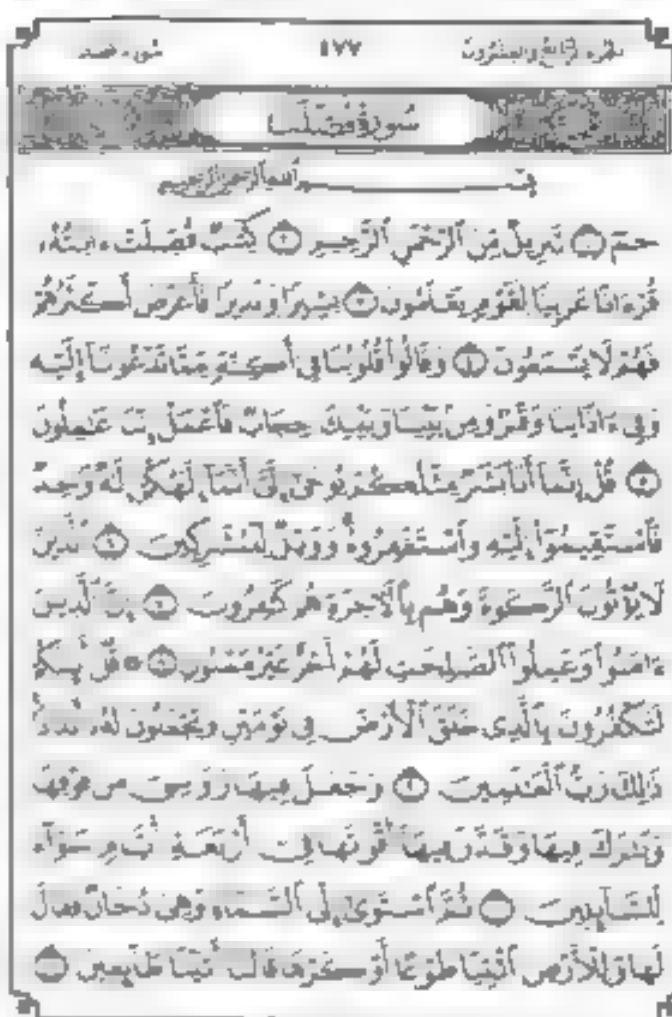 الجزء الرابع والعشرون ٤٧٧ سورة فصلت
سُورَةُ فُصِّلَتْ
بِسْمِ ٱللَّهِ ٱلرَّحْمَٰنِ ٱلرَّحِيمِ
حمٓ ١ تَنزِيلٌ مِّنَ ٱلرَّحْمَٰنِ ٱلرَّحِيمِ ٢ كِتَٰبٌ فُصِّلَتْ ءَايَٰتُهُۥ
قُرْءَانًا عَرَبِيًّا لِّقَوْمٍ يَعْلَمُونَ ٣ بَشِيرًا وَنَذِيرًا فَأَعْرَضَ أَكْثَرُهُمْ
فَهُمْ لَا يَسْمَعُونَ ٤ وَقَالُوا۟ قُلُوبُنَا فِىٓ أَكِنَّةٍ مِّمَّا تَدْعُونَآ إِلَيْهِ
وَفِىٓ ءَاذَانِنَا وَقْرٌ وَمِنۢ بَيْنِنَا وَبَيْنِكَ حِجَابٌ فَٱعْمَلْ إِنَّنَا عَٰمِلُونَ
٥ قُلْ إِنَّمَآ أَنَا۠ بَشَرٌ مِّثْلُكُمْ يُوحَىٰٓ إِلَىَّ أَنَّمَآ إِلَٰهُكُمْ إِلَٰهٌ وَٰحِدٌ
فَٱسْتَقِيمُوٓا۟ إِلَيْهِ وَٱسْتَغْفِرُوهُ وَوَيْلٌ لِّلْمُشْرِكِينَ ٦ ٱلَّذِينَ
لَا يُؤْتُونَ ٱلزَّكَوٰةَ وَهُم بِٱلْءَاخِرَةِ هُمْ كَٰفِرُونَ ٧ إِنَّ ٱلَّذِينَ
ءَامَنُوا۟ وَعَمِلُوا۟ ٱلصَّٰلِحَٰتِ لَهُمْ أَجْرٌ غَيْرُ مَمْنُونٍ ٨ ۞ قُلْ أَئِنَّكُمْ
لَتَكْفُرُونَ بِٱلَّذِى خَلَقَ ٱلْأَرْضَ فِى يَوْمَيْنِ وَتَجْعَلُونَ لَهُۥٓ أَندَادًا
ذَٰلِكَ رَبُّ ٱلْعَٰلَمِينَ ٩ وَجَعَلَ فِيهَا رَوَٰسِىَ مِن فَوْقِهَا
وَبَٰرَكَ فِيهَا وَقَدَّرَ فِيهَآ أَقْوَٰتَهَا فِىٓ أَرْبَعَةِ أَيَّامٍ سَوَآءً
لِّلسَّآئِلِينَ ١٠ ثُمَّ ٱسْتَوَىٰٓ إِلَى ٱلسَّمَآءِ وَهِىَ دُخَانٌ فَقَالَ
لَهَا وَلِلْأَرْضِ ٱئْتِيَا طَوْعًا أَوْ كَرْهًا قَالَتَآ أَتَيْنَا طَآئِعِينَ ١١